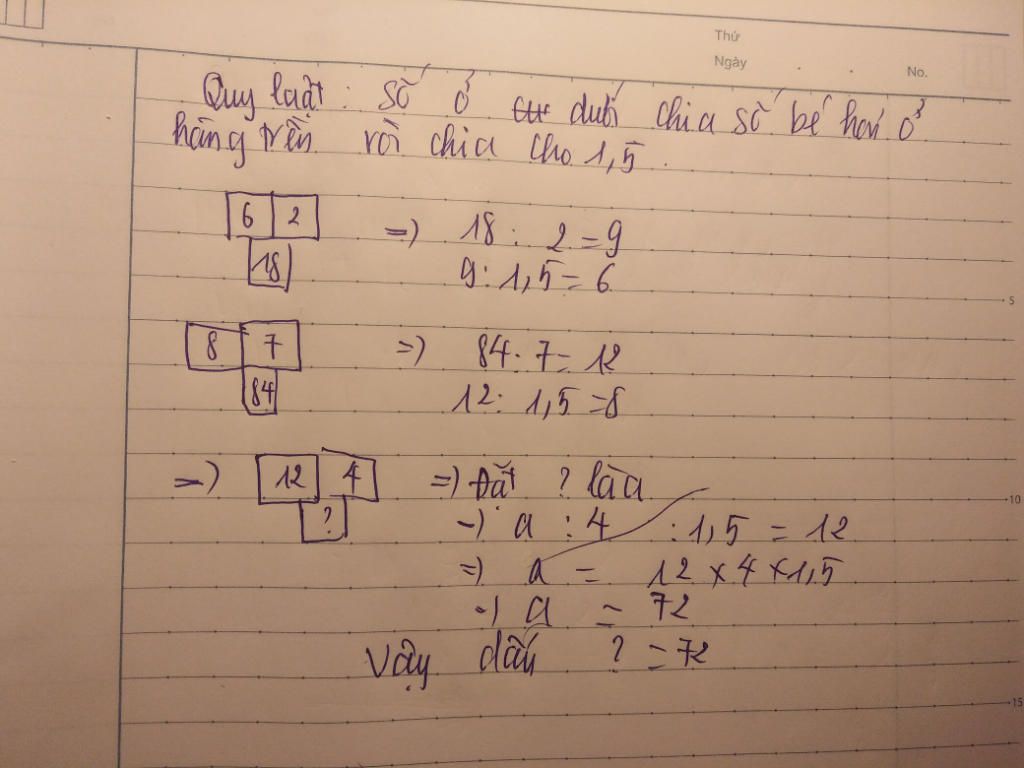 Thứ
Ngày . . No.
Quy luật : số ở dưới chia số bé hơn ở
hàng trên rồi chia cho 1,5.
6 2 => 18 : 2 = 9
18 9 : 1,5 = 6
5
8 7 => 84 : 7 = 12
84 12 : 1,5 = 8
=> 12 4 => Đặt ? là a
10
? => a : 4 : 1,5 = 12
=> a = 12 x 4 x 1,5
=> a = 72
Vậy dấu ? = 72
15